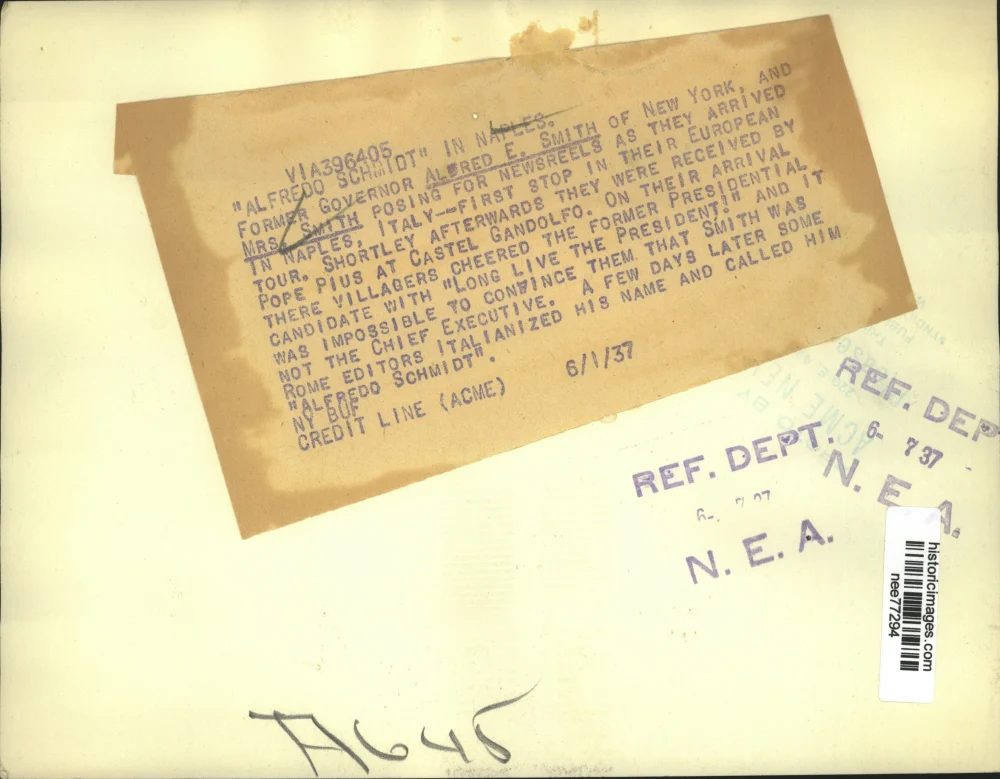 VIA396405
"ALFREDO SCHMIDT" IN NAPLES.
FORMER GOVERNOR ALFRED E. SMITH OF NEW YORK, AND
MRS. SMITH POSING FOR NEWSREELS AS THEY ARRIVED
IN NAPLES, ITALY--FIRST STOP IN THEIR EUROPEAN
TOUR. SHORTLEY AFTERWARDS THEY WERE RECEIVED BY
POPE PIUS AT CASTEL GANDOLFO. ON THEIR ARRIVAL
THERE VILLAGERS CHEERED THE FORMER PRESIDENTIAL
CANDIDATE WITH "LONG LIVE THE PRESIDENT!" AND IT
WAS IMPOSSIBLE TO CONVINCE THEM THAT SMITH WAS
NOT THE CHIEF EXECUTIVE. A FEW DAYS LATER SOME
ROME EDITORS ITALIANIZED HIS NAME AND CALLED HIM
"ALFREDO SCHMIDT".
NY BUF
CREDIT LINE (ACME) 6/1/37
REF. DEPT.
6- 7 37
N. E. A.
REF. DEP
6- 7 37
N. E. A.
ACME NE
historicimages.com
nee77294
A645